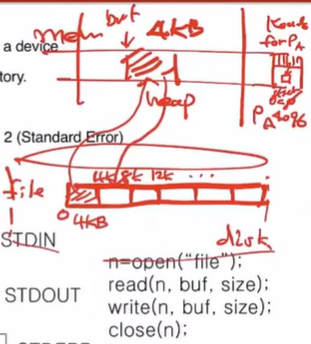 buf 4KB
Mem
for PA
a device
tory.
heap
PA 4096
2 (Standard Error)
4k 8k 12k ...
file
0 4KB
STDIN
disk
n=open("file");
STDOUT read(n, buf, size);
write(n, buf, size);
close(n);